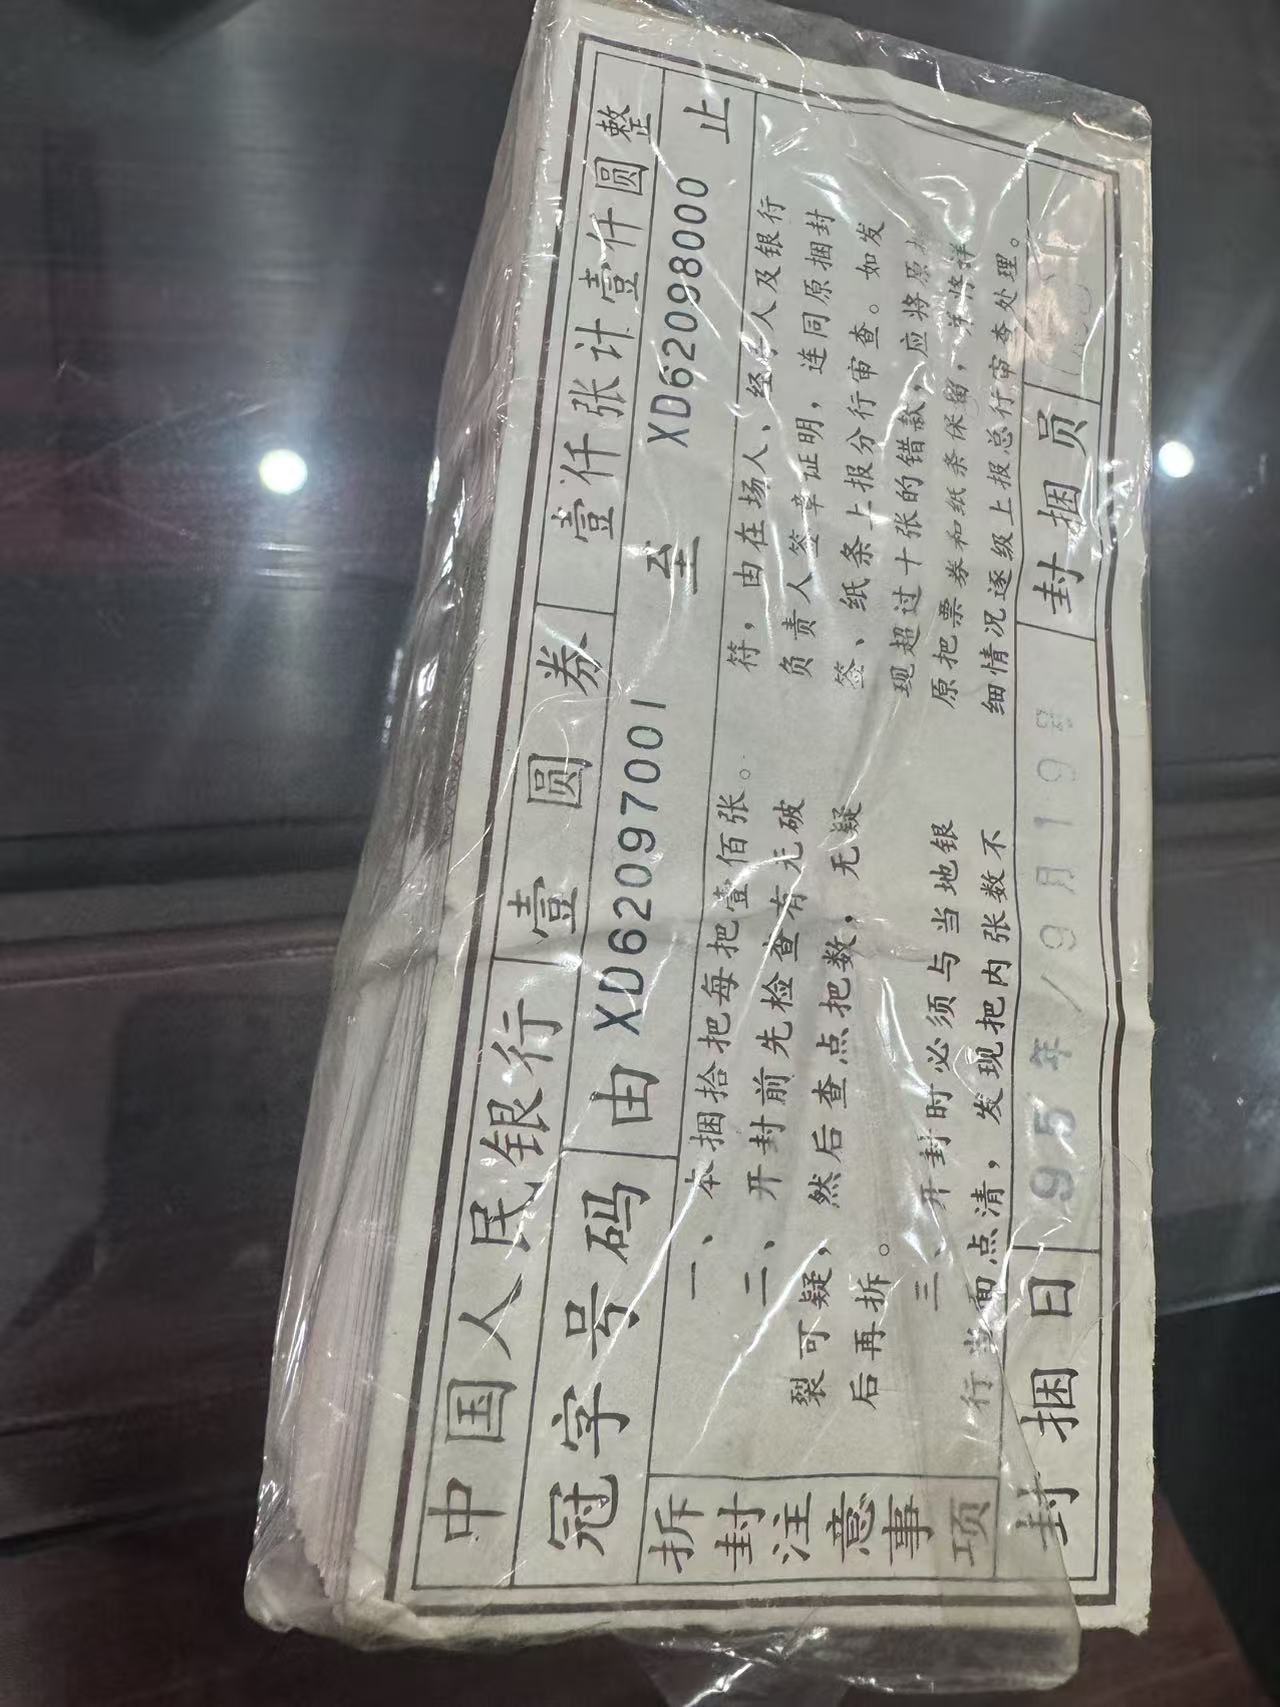 中国人民银行 壹圆券 壹仟张计壹仟圆整
冠字号码 由 XD62097001 至 XD62098000 止
拆封注意事项
一、本捆拾把每把壹佰张。
二、开封前先检查有无破
裂可疑，然后查点把数，无疑
后再拆。
三、开封时必须与当地银
行当面点清，发现把内张数不
符，由在场人、经手人及银行
负责人签章证明，连同原捆封
签、纸条上报分行审查。如发
现超过十张的错款，应将原
原把票券和纸条保留，并将详
细情况逐级上报总行审查处理。
封捆日 95年 9月19 封捆员